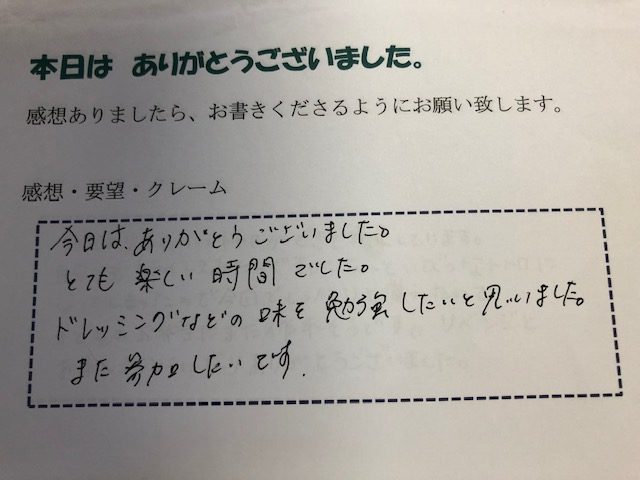 本日は ありがとうございました。
感想ありましたら、お書きくださるようにお願い致します。
感想・要望・クレーム
今日は、ありがとうございました。
とても楽しい時間でした。
ドレッシングなどの味を勉強したいと思いました。
また参加したいです.